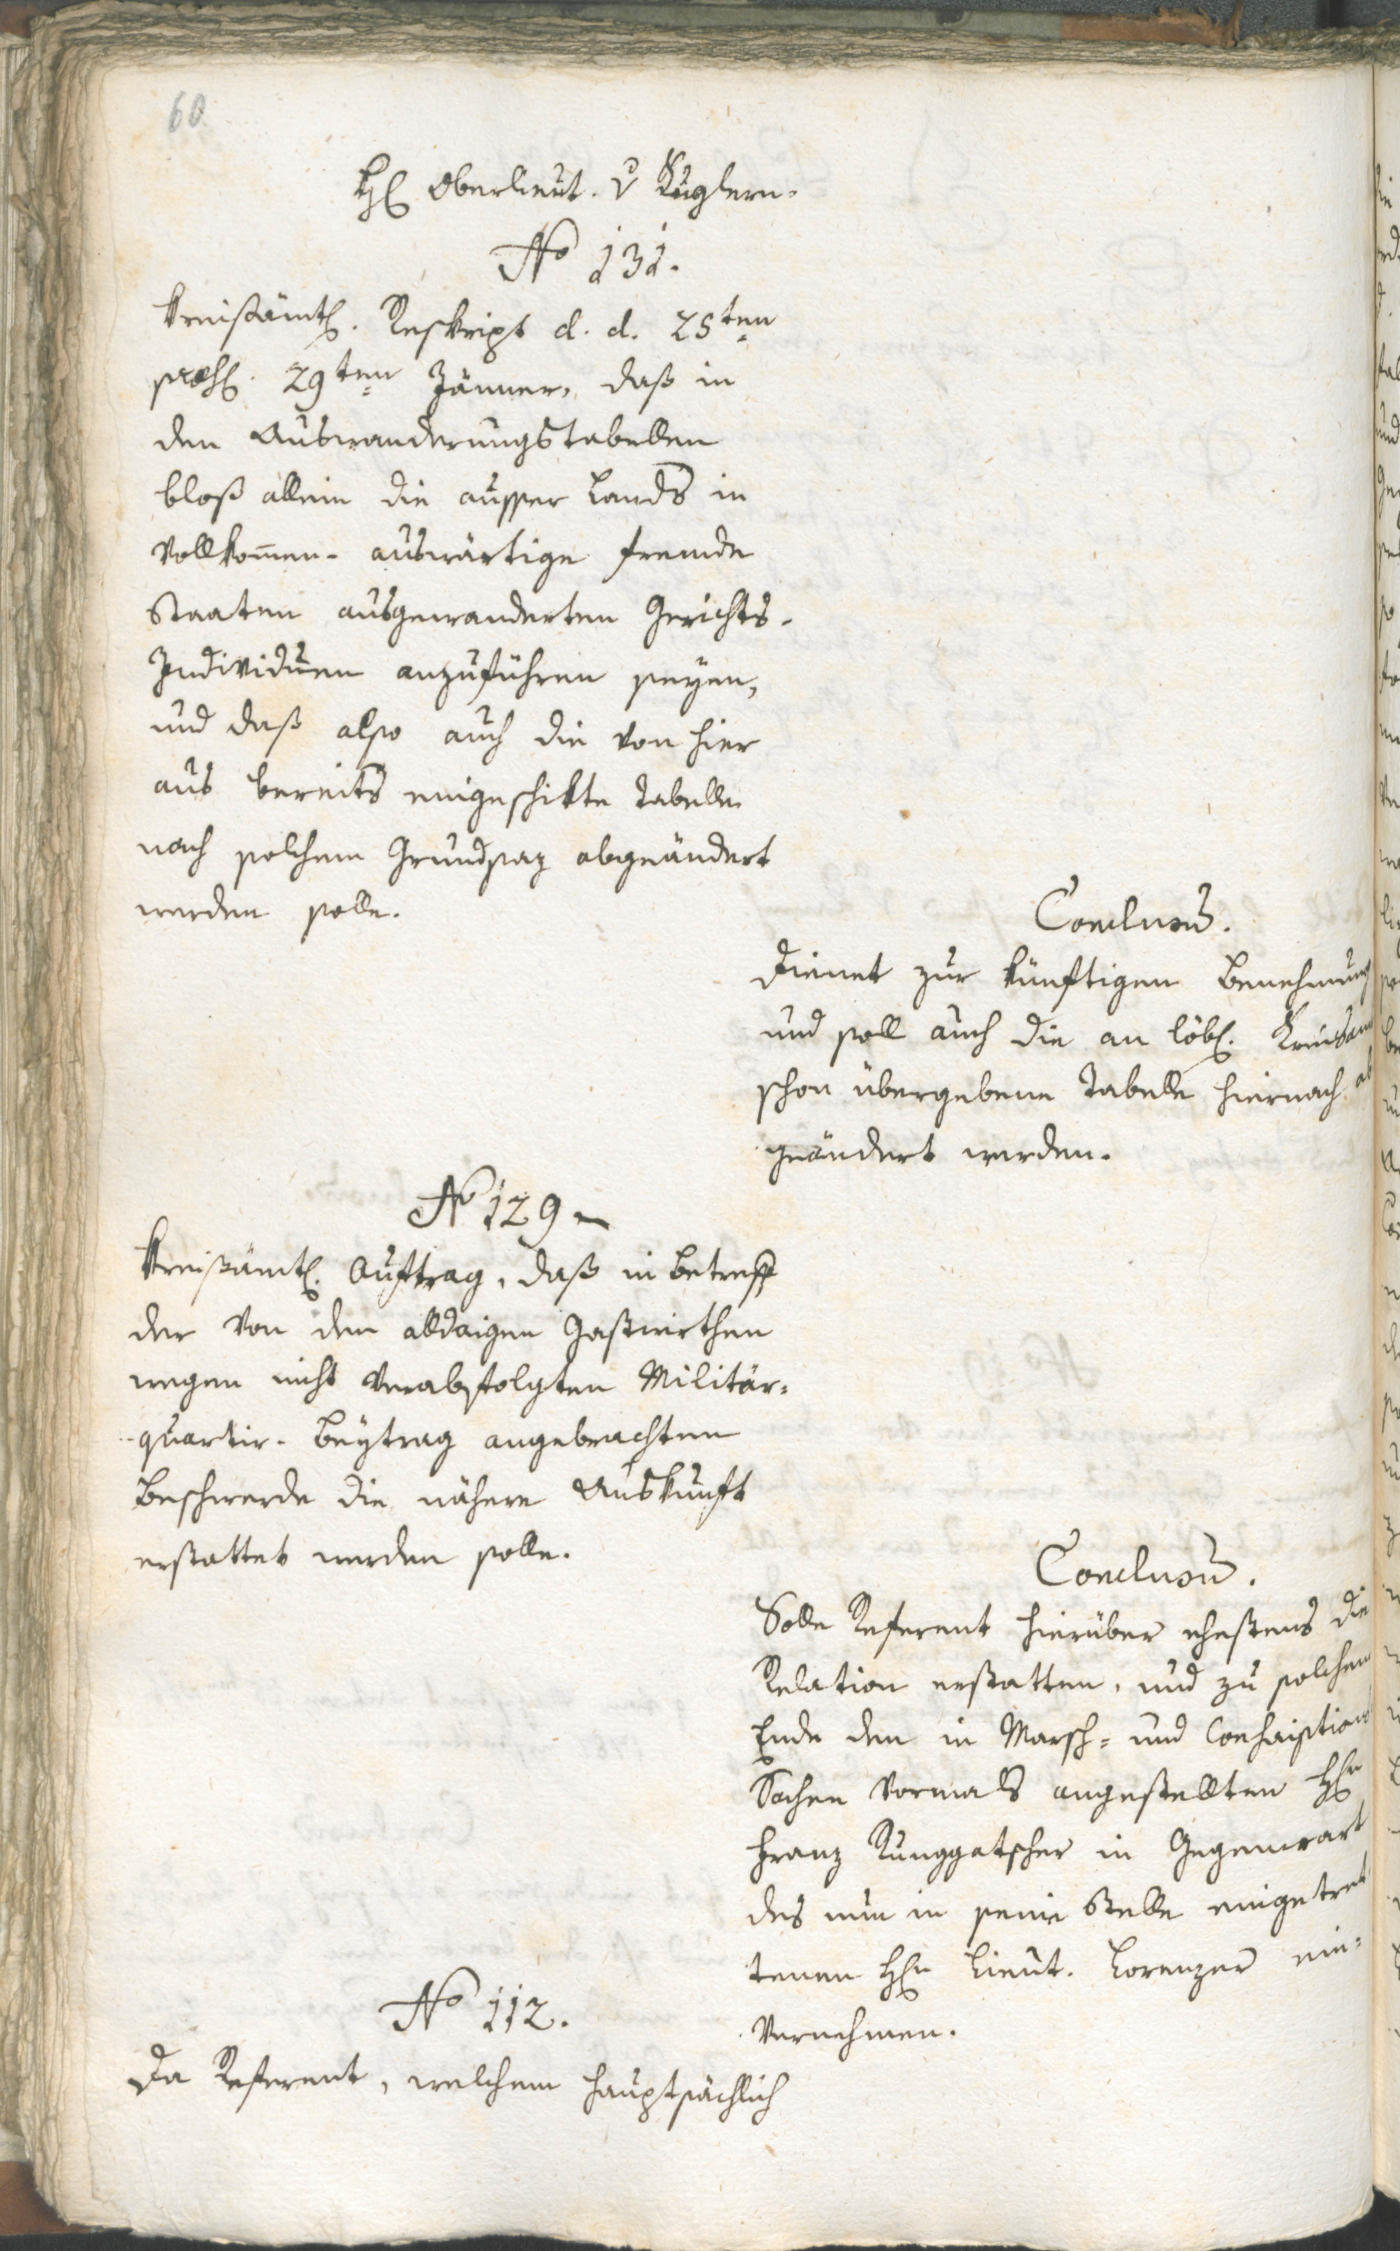 60
H. Oberlieut. v Kuglern.
No 131.
Kreißämtl. Reskript d. d. 25ten
præs. 29ten Jänner, daß in
den Auswanderungstabellen
bloß allein die ausser Lands in
vollkom̄en- auswärtige fremde
Staaten ausgewanderten Gerichts-
Individuen anzuführen seyen,
und daß also auch die von hier
aus bereits eingeschikte Tabelle
nach solchem Grundsaz abgeändert
werden solle.
Conclusum.
Dienet zur künftigen Benehmung
und soll auch die an löbl. Kreisamt
schon übergebene Tabelle hiernach ab
geändert werden.
No 129
Kreißämtl. Auftrag, daß in betreff
der von den alldaigen Gastwirthen
wegen nicht verabfolgten Militär=
quartir- Beytrag angebrachten
Beschwerde die nähere Auskunft
erstattet werden solle.
Conclusum.
Solle Referent hierüber ehestens die
Relation erstatten, und zu solchem
Ende den in Marsch= und Conscription
Sachen vormals angestellten Hn
Franz Runggatscher in Gegenwart
des nun in seine Stelle eingetret
tenen Hn Lieut. Lorenzer ein=
vernehmen.
No 112.
Da Referent, welchem hauptsächlich